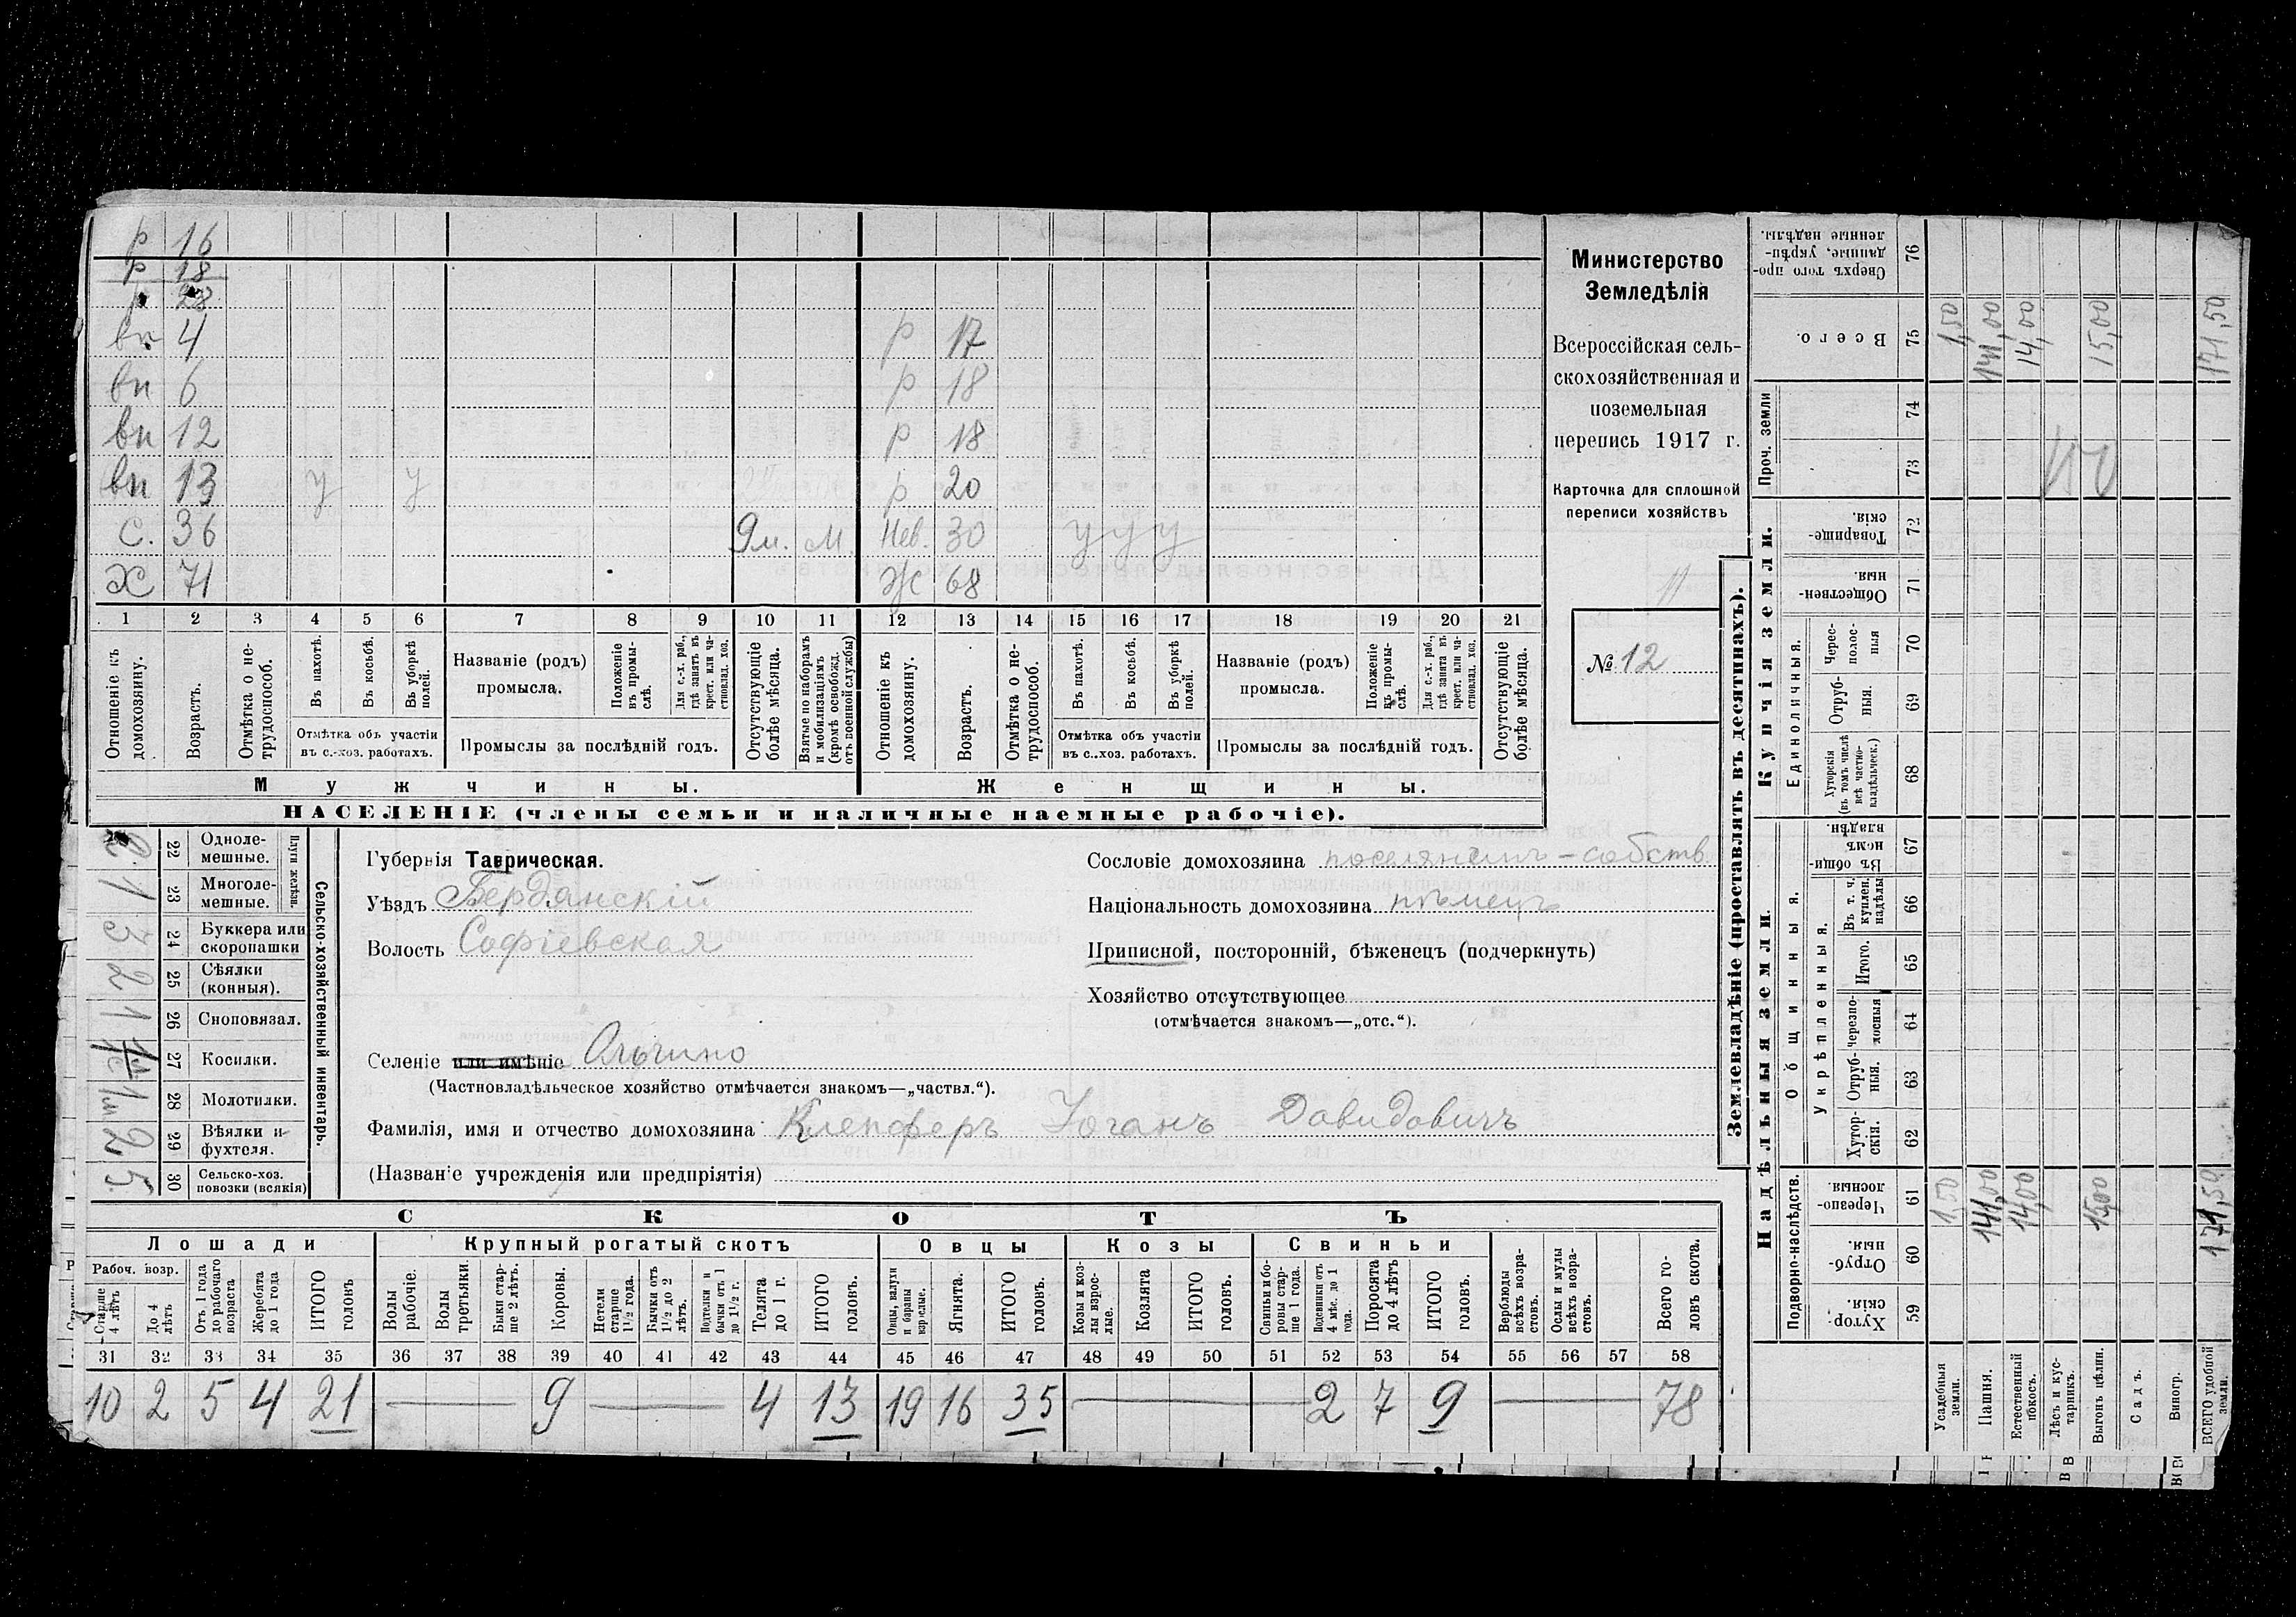 р 16
р 18
р 28
вн 4 р 17
вн 6 р 18
вн 12 р 18
вн 13 у у р 20
С. 36 9м. м. Нев. 30 у у у
Х 71 Ж 68
1 2 3 4 5 6 7 8 9 10 11 12 13 14 15 16 17 18 19 20 21
Отношеніе къ домохозяину.
Возрастъ.
Отмѣтка о нетрудоспособ.
Въ пахотѣ.
Въ косьбѣ.
Въ уборкѣ полей.
Отмѣтка объ участіи въ с.-хоз. работахъ.
Названіе (родъ) промысла.
Положеніе въ промыслѣ.
Для с.-х. раб., гдѣ занятъ въ крест. или частновлад. хоз.
Промыслы за послѣдній годъ.
Отсутствующіе болѣе мѣсяца.
Взятые по наборамъ и мобилизаціямъ (кромѣ освобожд. отъ военной службы)
Отношеніе къ домохозяину.
Возрастъ.
Отмѣтка о нетрудоспособ.
Въ пахотѣ.
Въ косьбѣ.
Въ уборкѣ полей.
Отмѣтка объ участіи въ с.-хоз. работахъ.
Названіе (родъ) промысла.
Положеніе въ промыслѣ.
Для с.-х. раб., гдѣ занята въ крест. или частновлад. хоз.
Промыслы за послѣдній годъ.
Отсутствующіе болѣе мѣсяца.
Мужчины. Женщины.
НАСЕЛЕНІЕ (члены семьи и наличные наемные рабочіе).
Министерство
Земледѣлія
Всероссійская сель-
скохозяйственная и
поземельная
перепись 1917 г.
Карточка для сплошной
переписи хозяйствъ
11
№ 12
Сельско-хозяйственный инвентарь.
Плуги желѣзн.
22 Одноле-мешные. 2
23 Многоле-мешные. 1
24 Буккера или скоропашки 3
25 Сѣялки (конныя). 2
26 Сноповязал. 1
27 Косилки.
28 Молотилки. 1
29 Вѣялки и фухтеля. 2
30 Сельско-хоз. повозки (всякія) 5
Губернія Таврическая.
Уѣздъ Бердянскій
Волость Софіевская
Селеніе или имѣніе Ольгино
(Частновладѣльческое хозяйство отмѣчается знакомъ—„частвл.“).
Фамилія, имя и отчество домохозяина Клепферъ Іоганъ Давидовичъ
(Названіе учрежденія или предпріятія)
Сословіе домохозяина поселянинъ-собств
Національность домохозяина нѣмецъ
Приписной, посторонній, бѣженецъ (подчеркнуть)
Хозяйство отсутствующее
(отмѣчается знакомъ—„отс.“).
СКОТЪ
Лошади Крупный рогатый скотъ Овцы Козы Свиньи
Рабоч. возр.
Старше 4 лѣтъ
До 4 лѣтъ
Отъ 1 года до рабочаго возраста
Жеребята до 1 года
ИТОГО головъ
Волы рабочіе.
Волы третьяки.
Быки старше 2 лѣтъ.
Коровы.
Нетели старше 1½ года.
Бычки отъ 1½ до 2 лѣтъ.
Подтелки и бычки отъ 1 до 1½ г.
Телята до 1 г.
ИТОГО головъ.
Овцы, валухи и бараны взрослые.
Ягнята.
ИТОГО головъ.
Козы и козлы взрослые.
Козлята
ИТОГО головъ.
Свиньи и боровы старше 1 года.
Подсвинки отъ 4 мѣс. до 1 года.
Поросята до 4 лѣтъ
ИТОГО головъ.
Верблюды всѣхъ возрастовъ.
Ослы и мулы всѣхъ возрастовъ.
Всего головъ скота.
31 32 33 34 35 36 37 38 39 40 41 42 43 44 45 46 47 48 49 50 51 52 53 54 55 56 57 58
10 2 5 4 21 — 9 — 4 13 19 16 35 — 2 7 9 — 78
Землевладѣніе (проставлять въ десятинахъ).
Надѣльныя земли. Купчія земли.
Подворно-наслѣдств.
Общинныя.
Укрѣпленныя.
Единоличныя.
Проч. земли
59 Хутор-скія.
60 Отруб-ныя.
61 Черезпо-лосныя.
62 Хутор-скія.
63 Отруб-ныя.
64 Черезпо-лосныя
65 Итого.
66 Въ т. ч. куплен. надѣлы
67 Въ общиномъ владѣн.
68 Хуторскія (въ томъ числѣ всѣ частно-владѣльческ.)
69 Отруб-ныя.
70 Черес-полос-ныя
71 Обществен-ныя.
72 Товарище-скія.
73
74
75 Всего.
76 Сверхъ того про-данные, укрѣп-ленные надѣлы.
Усадебныя земли. 1,50 1,50
Пашня. 141,00 141,00
Естественный покосъ. 14,00 14,00
Лѣсъ и кустарникъ.
Выгонъ цѣлин. 15,00 15,00
Садъ.
Виногр.
ВСЕГО удобной земли. 171,50 171,50